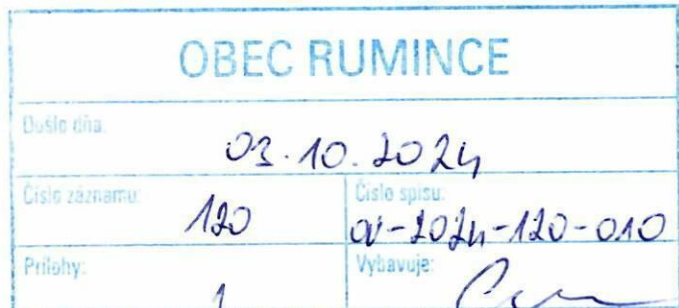 OBEC RUMINCE
Došlo dňa:
03.10.2024
Číslo záznamu:
120
Číslo spisu:
OV-2024-120-010
Prílohy:
1
Vybavuje: